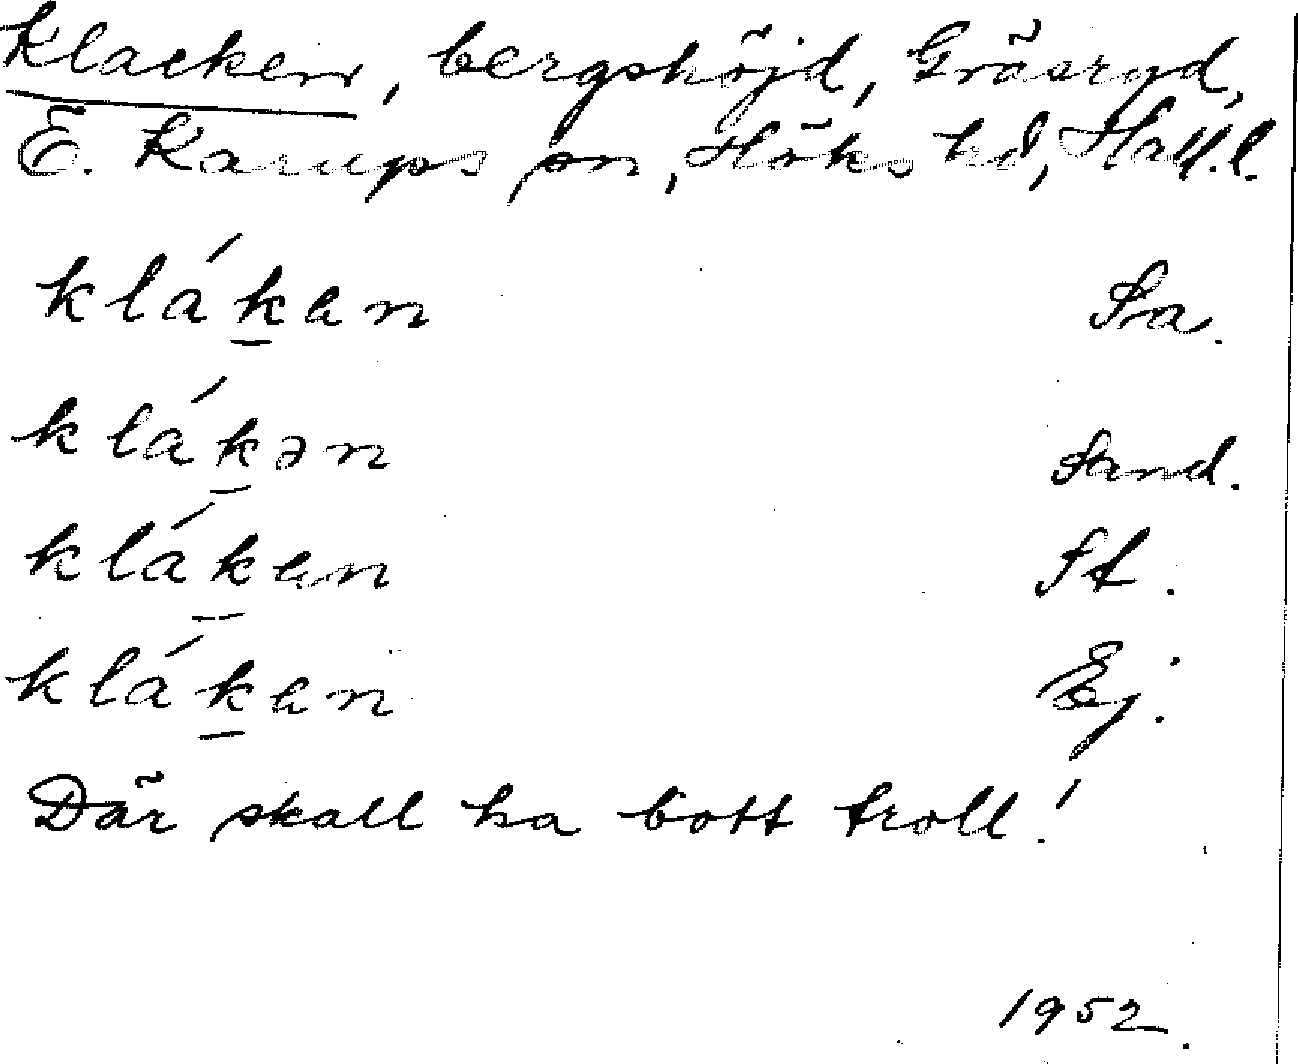 Klacken, bergshöjd, Gråsryd,
E. Karups sn, Höks hd, Hall.l.
klákan Sa.
klákən Sand.
klákan St.
klákan Ej.
Där skall ha bott troll!
1952.